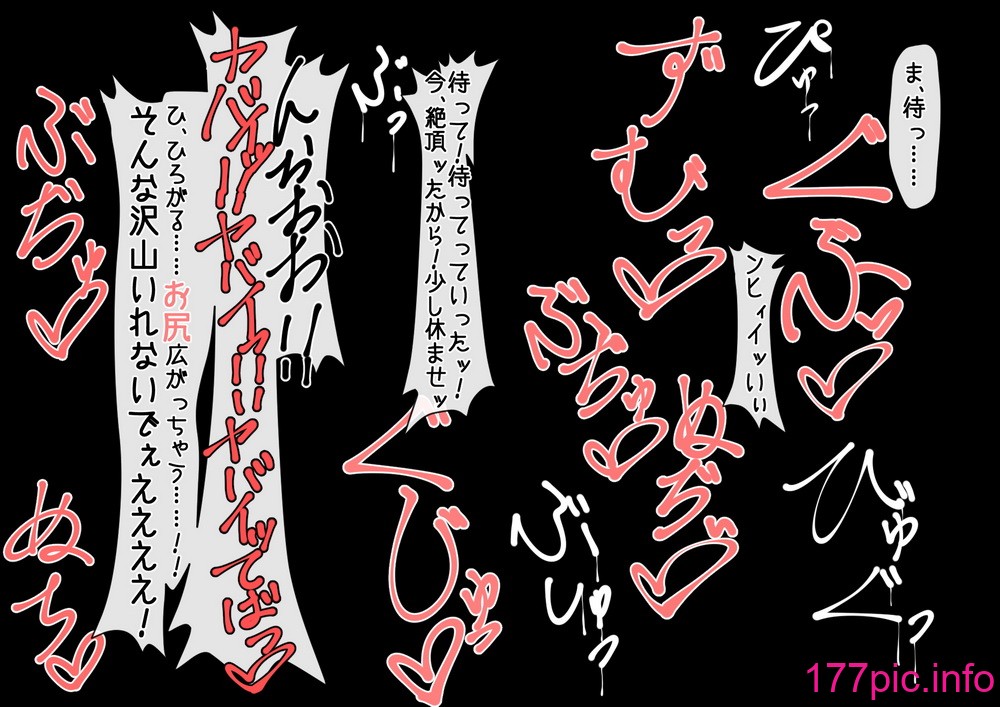 ま、待っ……
ぴゅっ
ぐぷっ♡
びゅぐっ
ンヒィイッいぃ
ずむっ♡
ぶちゅっ♡
ぬぢっ♡
ぶーっ
待って！待ってっていったッ！
今、絶頂ッたから！少し休ませッ
ぐじゅっ♡
ヤバイッ!!ヤバイッ!!ヤバイッてばっ♡
ひ、ひろがる……お尻広がっちゃう……！！
そんな沢山いれないでぇええええ！
ぶぢゅっ♡
ぬち♡
177pic.info